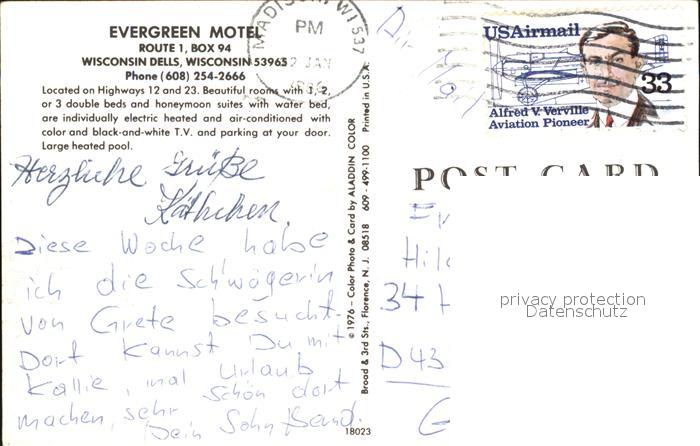 EVERGREEN MOTEL
ROUTE 1, BOX 94
WISCONSIN DELLS, WISCONSIN 53965
Phone (608) 254-2666
Located on Highways 12 and 23. Beautiful rooms with 1, 2,
or 3 double beds and honeymoon suites with water bed,
are individually electric heated and air-conditioned with
color and black-and-white T.V. and parking at your door.
Large heated pool.
Herzliche Grüße
Käthchen.
Diese Woche habe
ich die Schwägerin
von Grete besucht.
Dort kannst Du mit
Kallie, mal Urlaub
machen, sehr schön dort
Dein Sohn Bernd.
© 1976 - Color Photo & Card by ALADDIN COLOR
Broad & 3rd Sts., Florence, N. J. 08518 609 - 499-1100 Printed in U.S.A.
18023
MADISON, WI 537
PM
2 JAN
USAirmail
33
Alfred V. Verville
Aviation Pioneer
POST CARD
34
D 43
privacy protection
Datenschutz